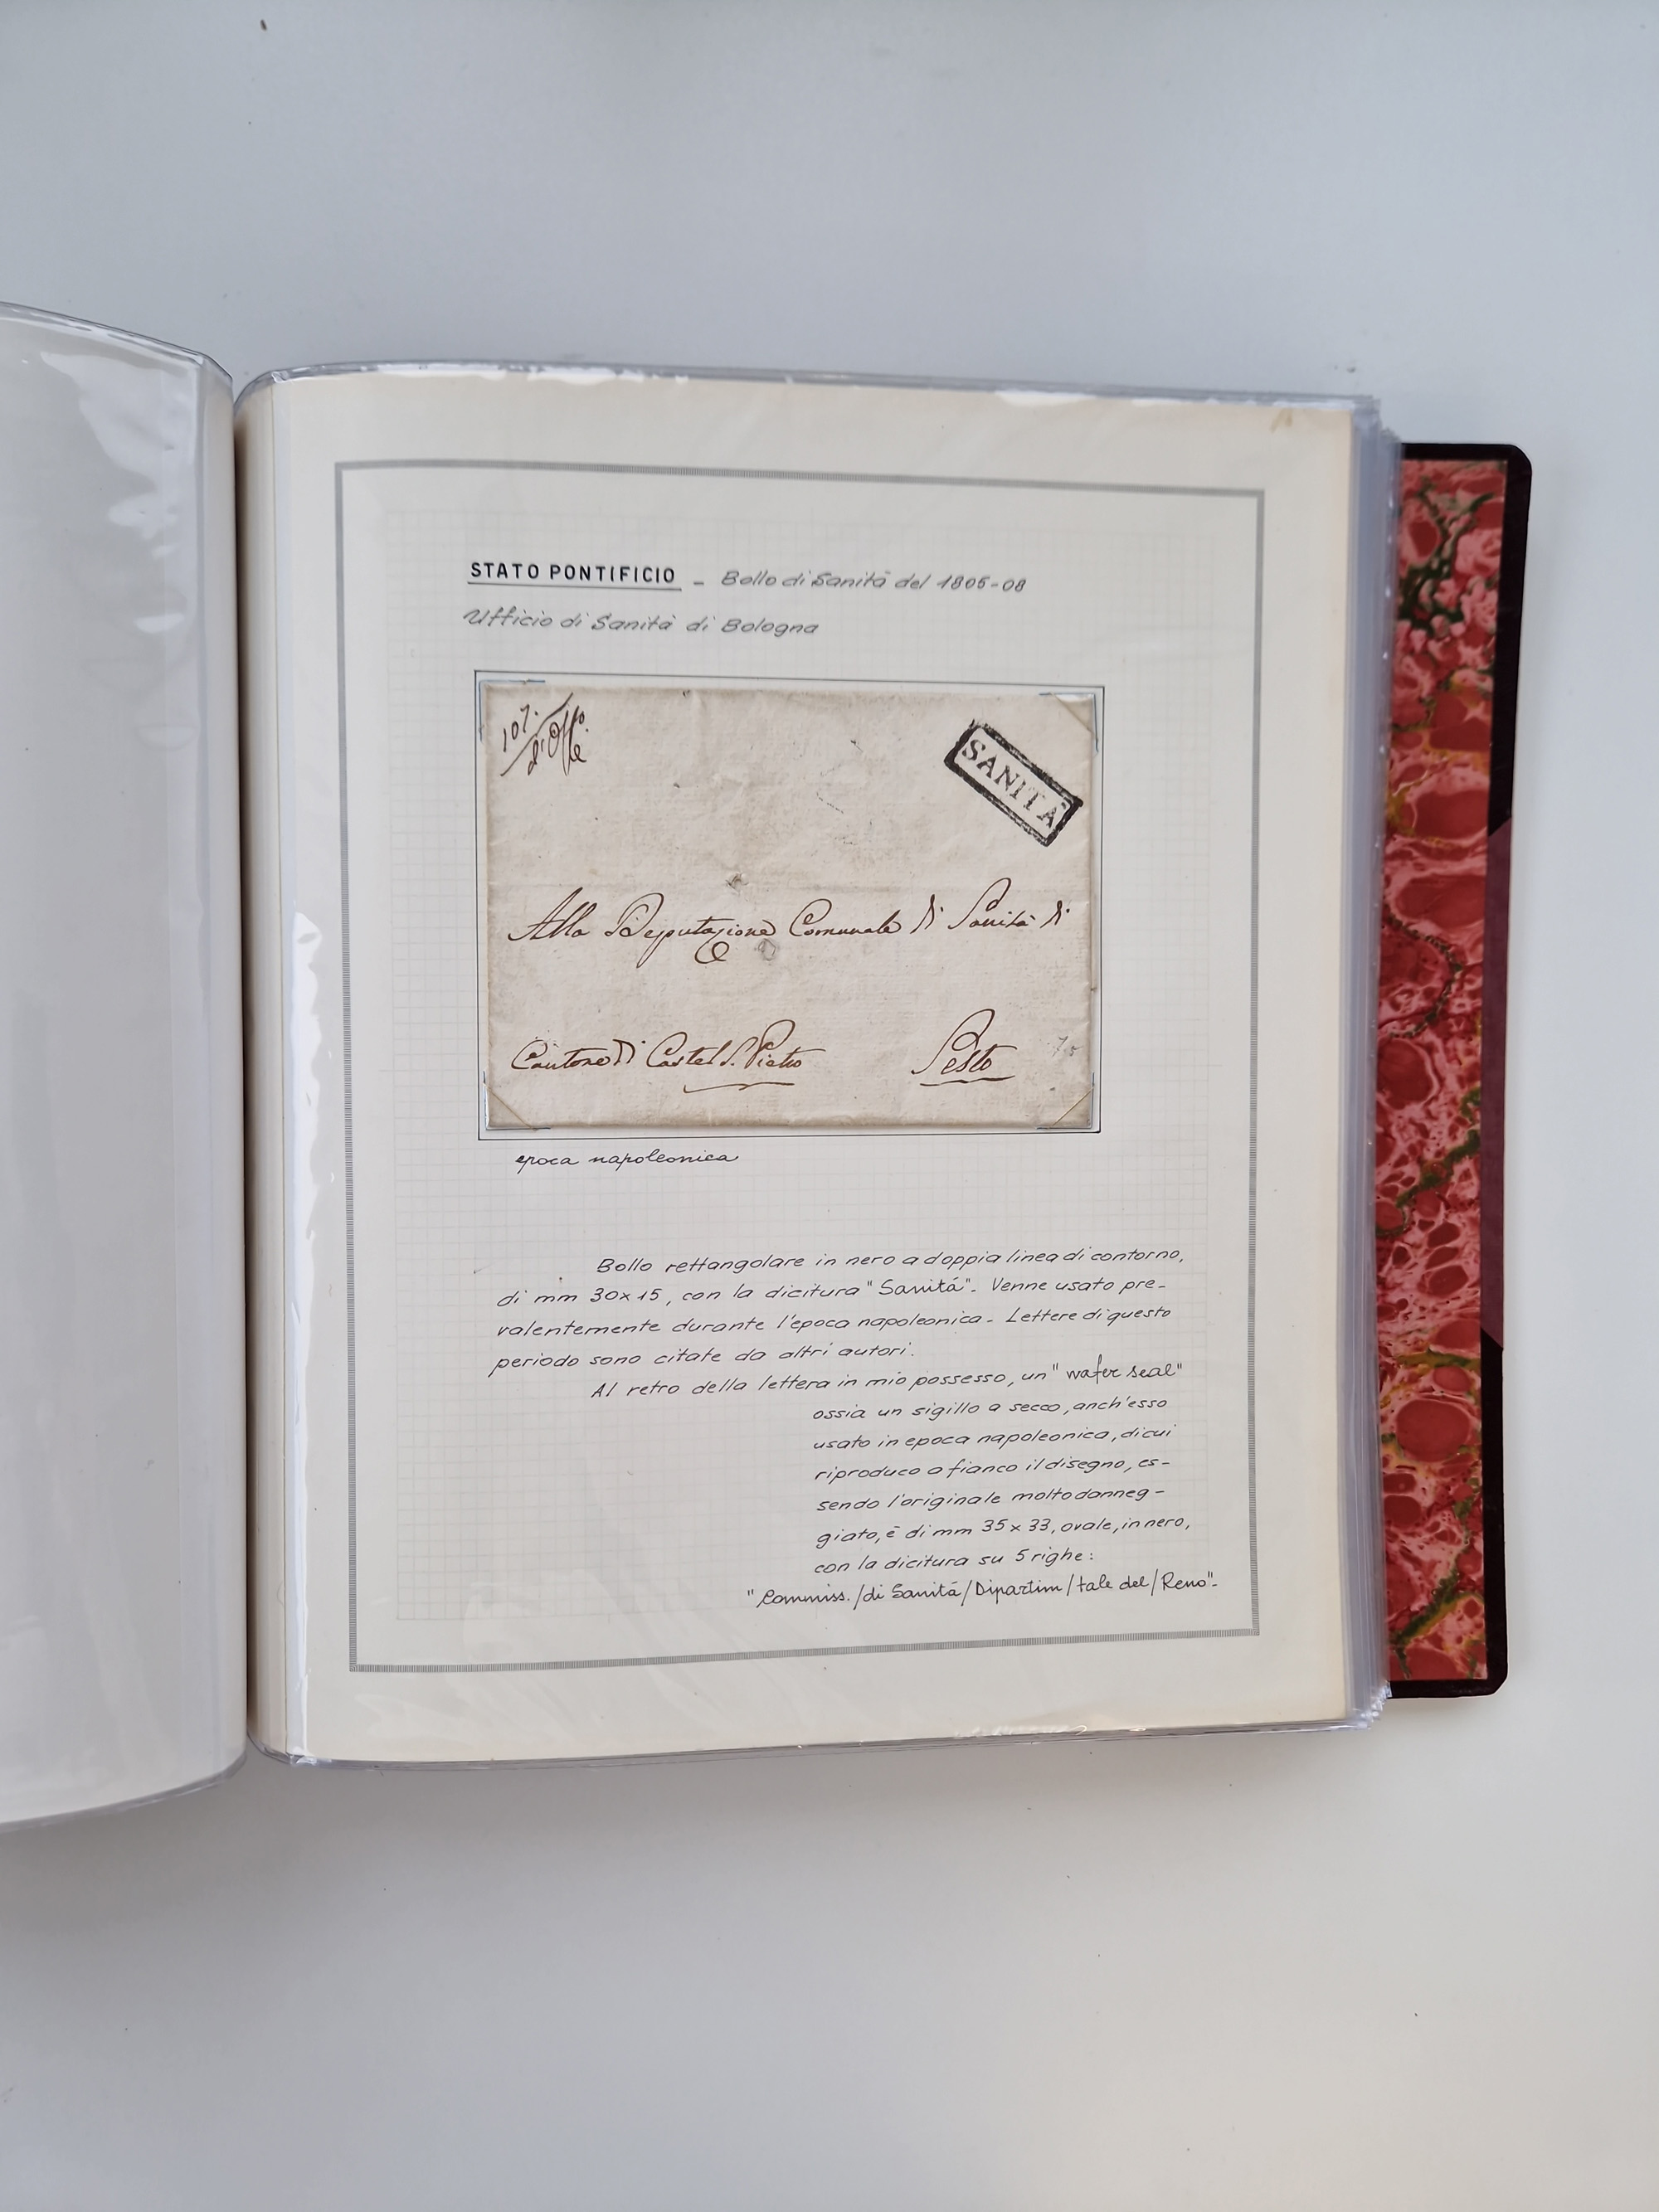 STATO PONTIFICIO - Bollo di Sanità del 1805-08
Ufficio di Sanità di Bologna
107.
d'Offo.
SANITÀ
Alla Deputazione Comunale di Sanità di
Cantone di Castel S. Pietro Sesto
epoca napoleonica
Bollo rettangolare in nero a doppia linea di contorno,
di mm 30x15, con la dicitura "Sanità". Venne usato pre-
valentemente durante l'epoca napoleonica - Lettere di questo
periodo sono citate da altri autori.
Al retro della lettera in mio possesso, un "wafer seal"
ossia un sigillo a secco, anch'esso
usato in epoca napoleonica, di cui
riproduco a fianco il disegno, es-
sendo l'originale molto danneg-
giato, è di mm 35x33, ovale, in nero,
con la dicitura su 5 righe:
"Commiss./di Sanità/Dipartim/tale del/Reno"-